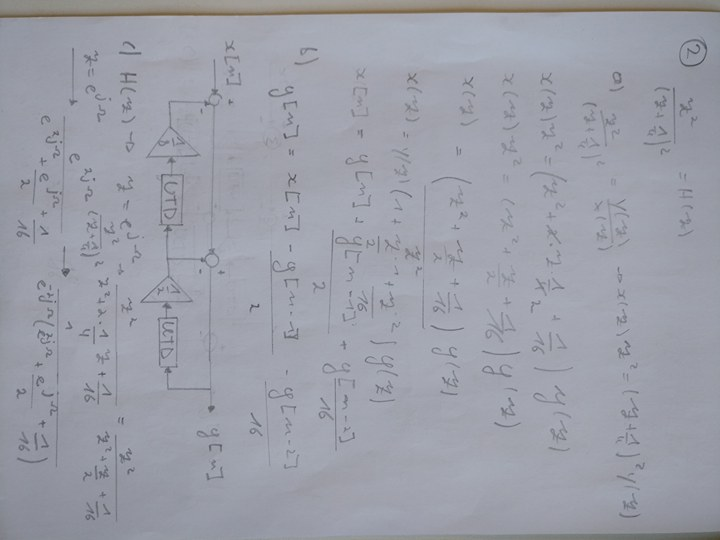 ②
z²/(z+1/4)² = H(z)
a) z²/(z+1/4)² = Y(z)/X(z) ⇒ X(z)z² = (z+1/4)² Y(z)
X(z)z² = (z²+2·z·1/4+1/16) Y(z)
X(z)z² = (z²+z/2+1/16) Y(z)
X(z) = (z²+z/2+1/16)/z² Y(z)
X(z) = Y(z)(1+z⁻¹/2+z⁻²/16) Y(z)
x[n] = y[n]+y[n-1]/2+y[n-2]/16
b)
y[n] = x[n] - y[n-1]/2 - y[n-2]/16
x[n] = y[n]
- + - +
1/8 UTD 1/2 UTD
c) H(z) ⇒ z=e^jΩ → z²/(z+1/4)² z²/(z²+2·1/4z+1/16) = z²/(z²+z/2+1/16)
z=e^jΩ → e^2jΩ/(e^2jΩ+e^jΩ/2+1/16) → 1/(e^-2jΩ(e^2jΩ+e^jΩ/2+1/16))